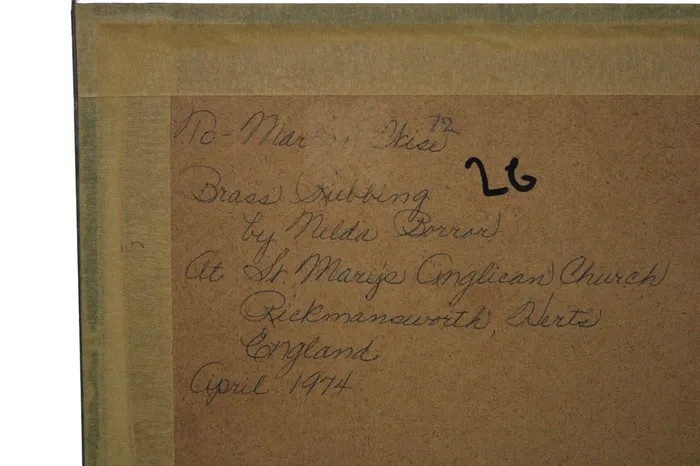 To - Wise
72
26
Brass Rubbing
by Nelda Borror
At St. Mary's Anglican Church
Rickmansworth, Herts
England
April 1974